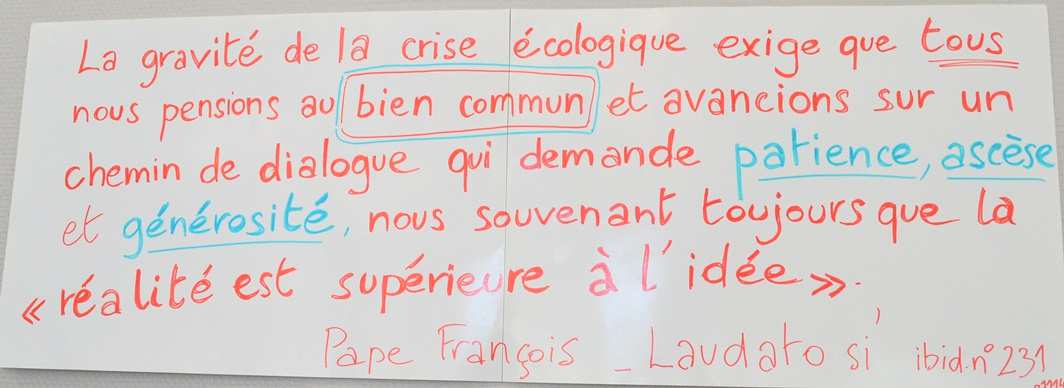 La gravité de la crise écologique exige que tous
nous pensions au bien commun et avancions sur un
chemin de dialogue qui demande patience, ascèse
et générosité, nous souvenant toujours que la
« réalité est supérieure à l'idée ».
Pape François _ Laudato si' ibid. n° 231